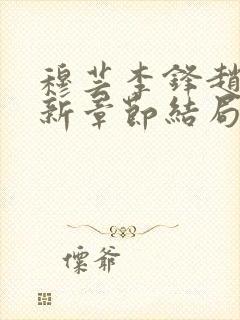 穆芸李鋒趙
新章節結局
懍爺